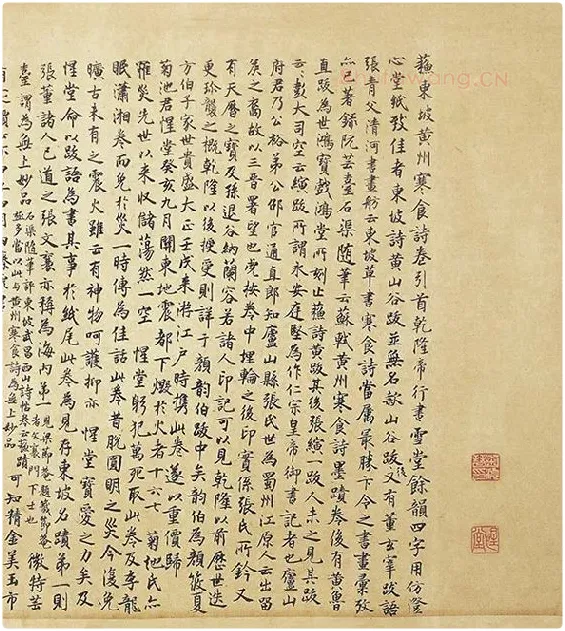 蘇東坡黃州寒食詩卷引首乾隆帝行書雪堂餘韻四字用仿澄
心堂紙致佳者東坡詩黃山谷跋並無名款山谷跋後又有董玄宰跋語
張青父清河書畫舫云東坡草書寒食詩當屬最勝卞令之書畫彙攷
亦已著錄阮芸臺石渠隨筆云蘇軾黃州寒食詩墨蹟卷後有黃魯
直跋為世鴻寶戲鴻堂所刻止蘇詩黃跋其後張縯一跋人未之見其跋
云云彭大司空云縯跋所謂永安庭堅為作仁宗皇帝御書記者也廬山
府君乃公裕弟公邵官通直郎知廬山縣張氏世為蜀州江原人云出留
侯之裔故以三晉署望也虎按卷中埋輪之後印實係張氏所鈐又
有天曆之寶及孫退谷納蘭容若諸人印記可以見乾隆以前歷世迭
更珍襲之概乾隆以後授受則詳于顏韵伯跋中矣韵伯為顏筱夏
方伯子家世貴盛大正壬戌來游江戶時攜此卷遂以重價歸
菊池君惺堂癸亥九月關東地震都下燬於火者十六七菊池氏亦
罹災先世以來收儲蕩然一空惺堂躬犯萬死取此卷及李龍
眠瀟湘卷而免於災一時傳為佳話此卷昔脫圓明之災今復免
曠古未有之震火雖云有神物呵護抑亦惺堂寶愛之力矣及
惺堂命以跋語為書其事於紙尾此卷為見存東坡名蹟第一則
張董諸人已道之張文襄亦稱為海內第一見梁節庵題籤節庵者文襄門下士也微特芸
臺謂為無上妙品石渠隨筆評東坡武昌西山詩帖卷云蘇蹟極多當以此與黃州寒食詩為無上妙品可知精金美玉市